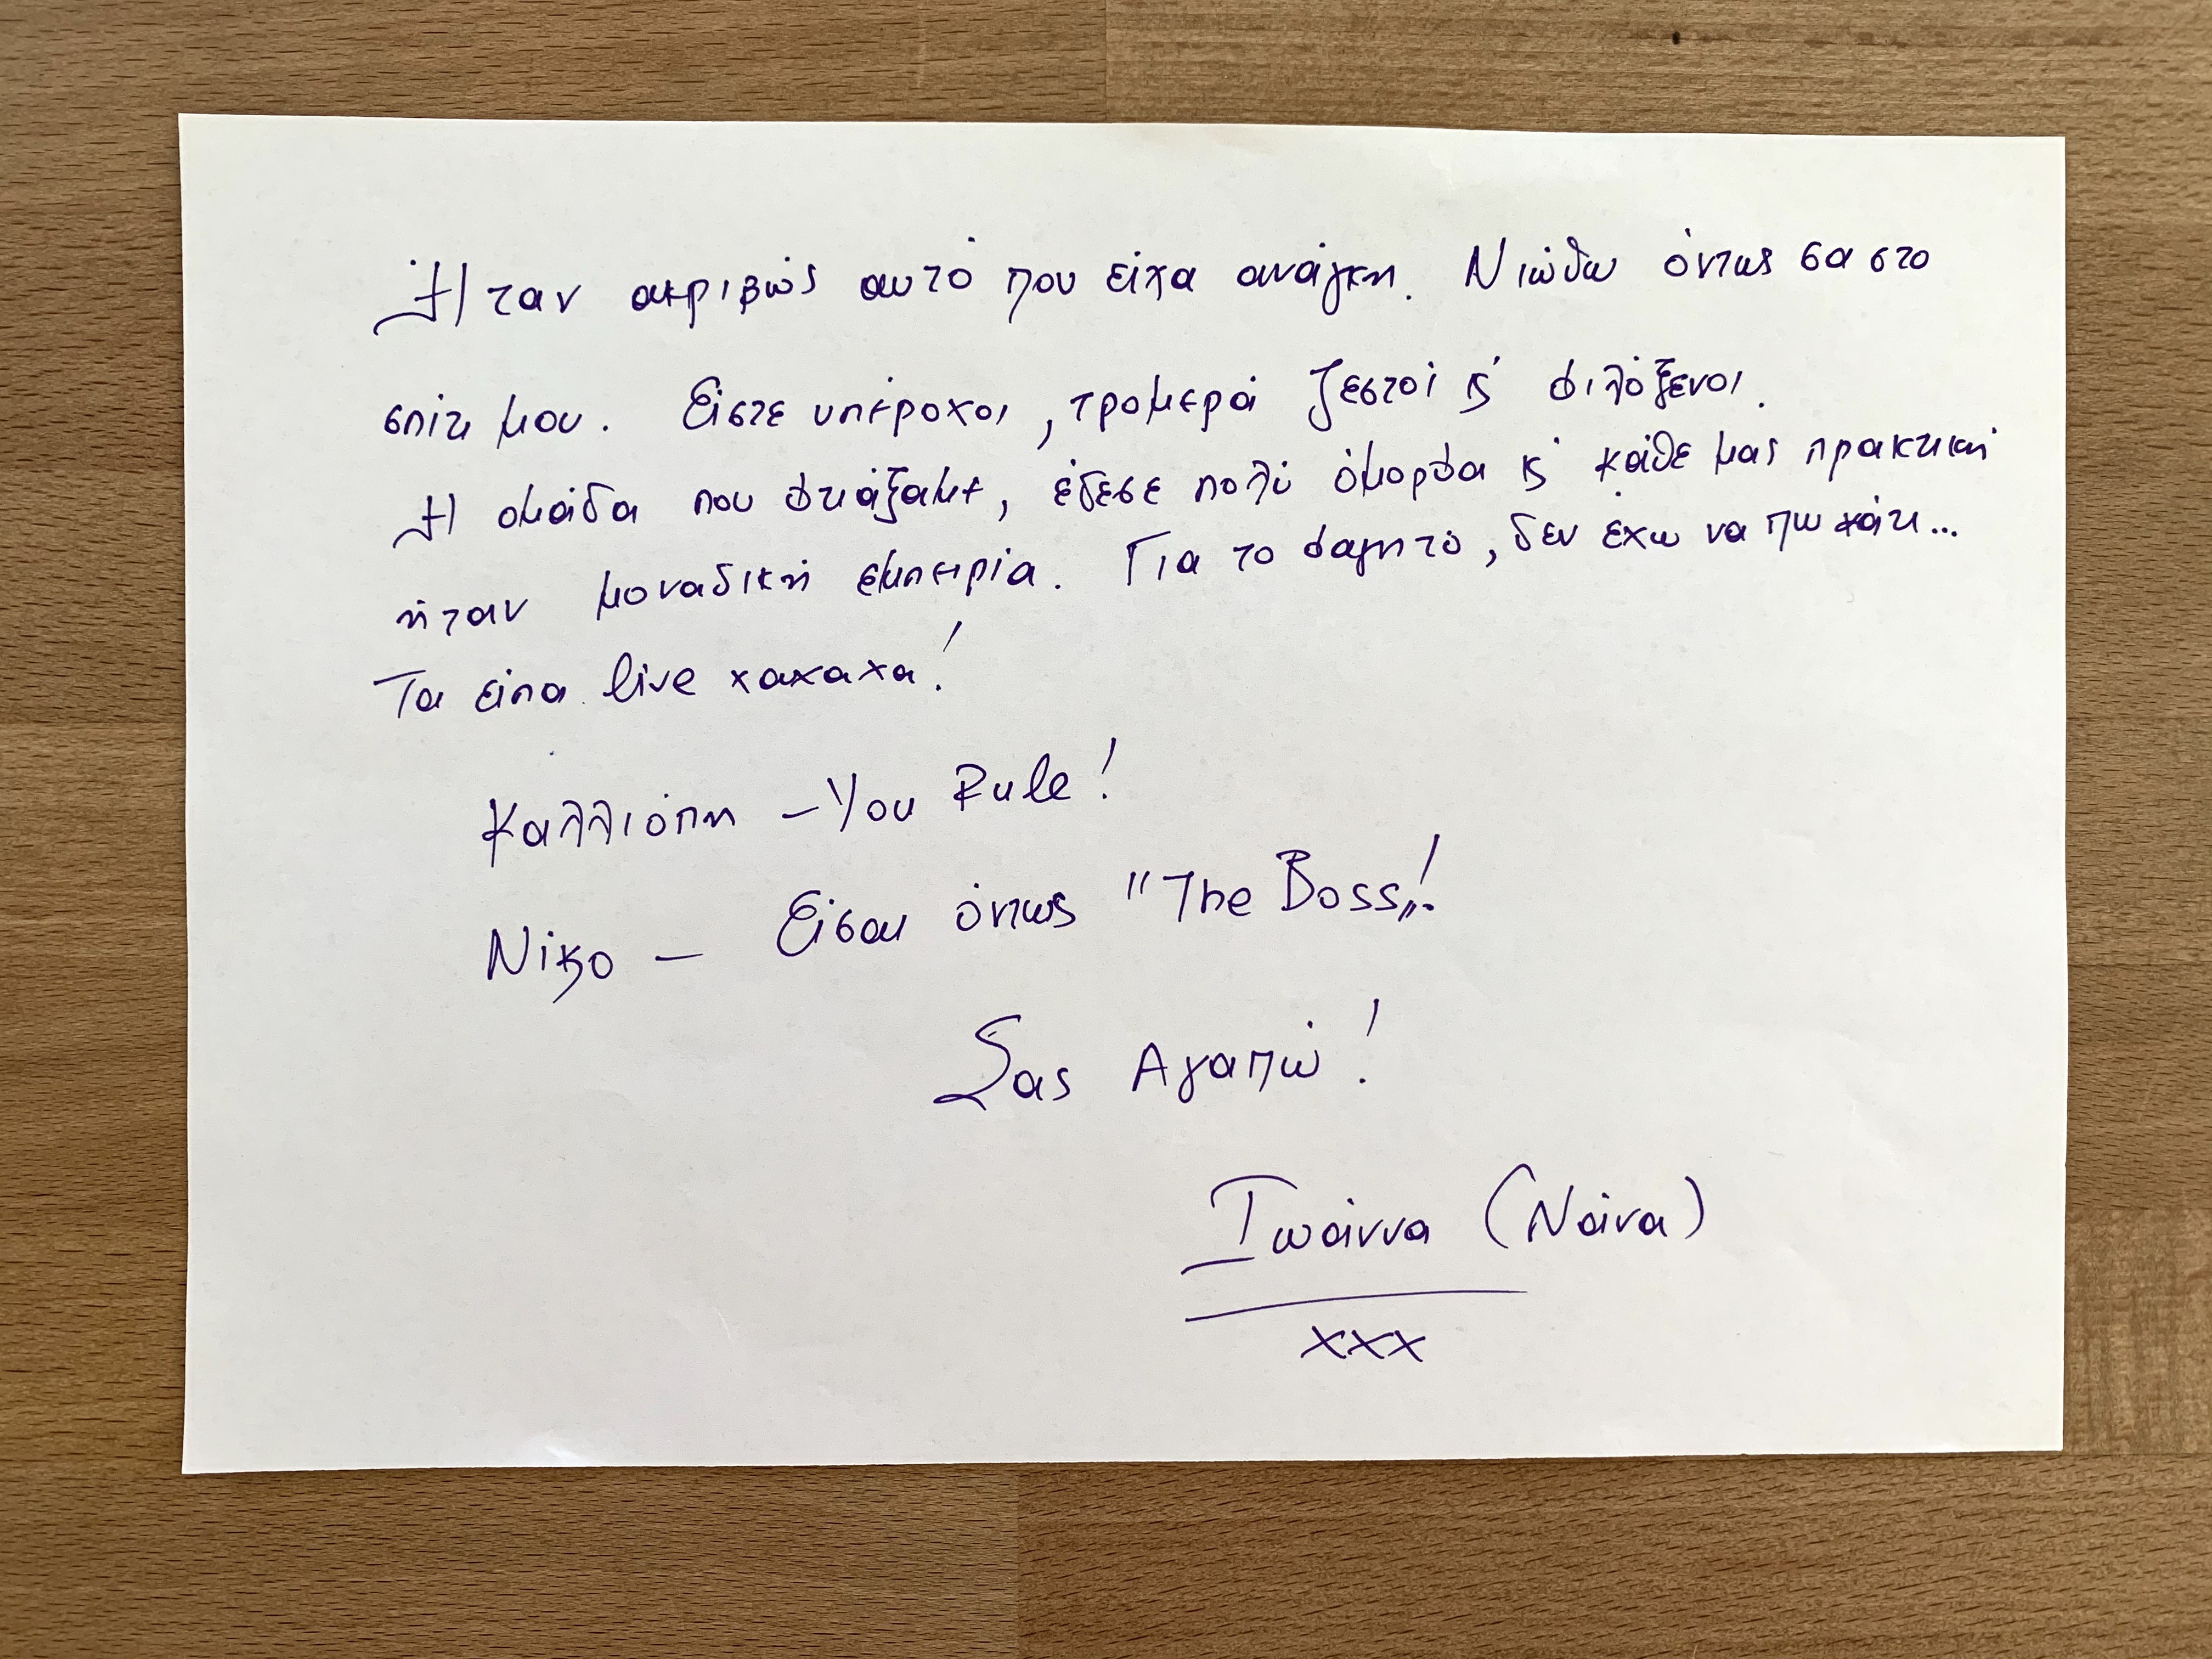 Ήταν ακριβώς αυτό που είχα ανάγκη. Νιώθω όντως σα στο
σπίτι μου. Είστε υπέροχοι, τρομερά ζεστοί κ' φιλόξενοι.
Η ομάδα που φτιάξαμε, έδεσε πολύ όμορφα κ' κάθε μας πρακτική
ήταν μοναδική εμπειρία. Για το φαγητό, δεν έχω να πω κάτι...
Τα είπα live χαχαχα!
Καλλιόπη – You Rule!
Νίκο – Είσαι όντως "The Boss"!
Σας Αγαπώ!
Ιωάννα (Νάνα)
xxx